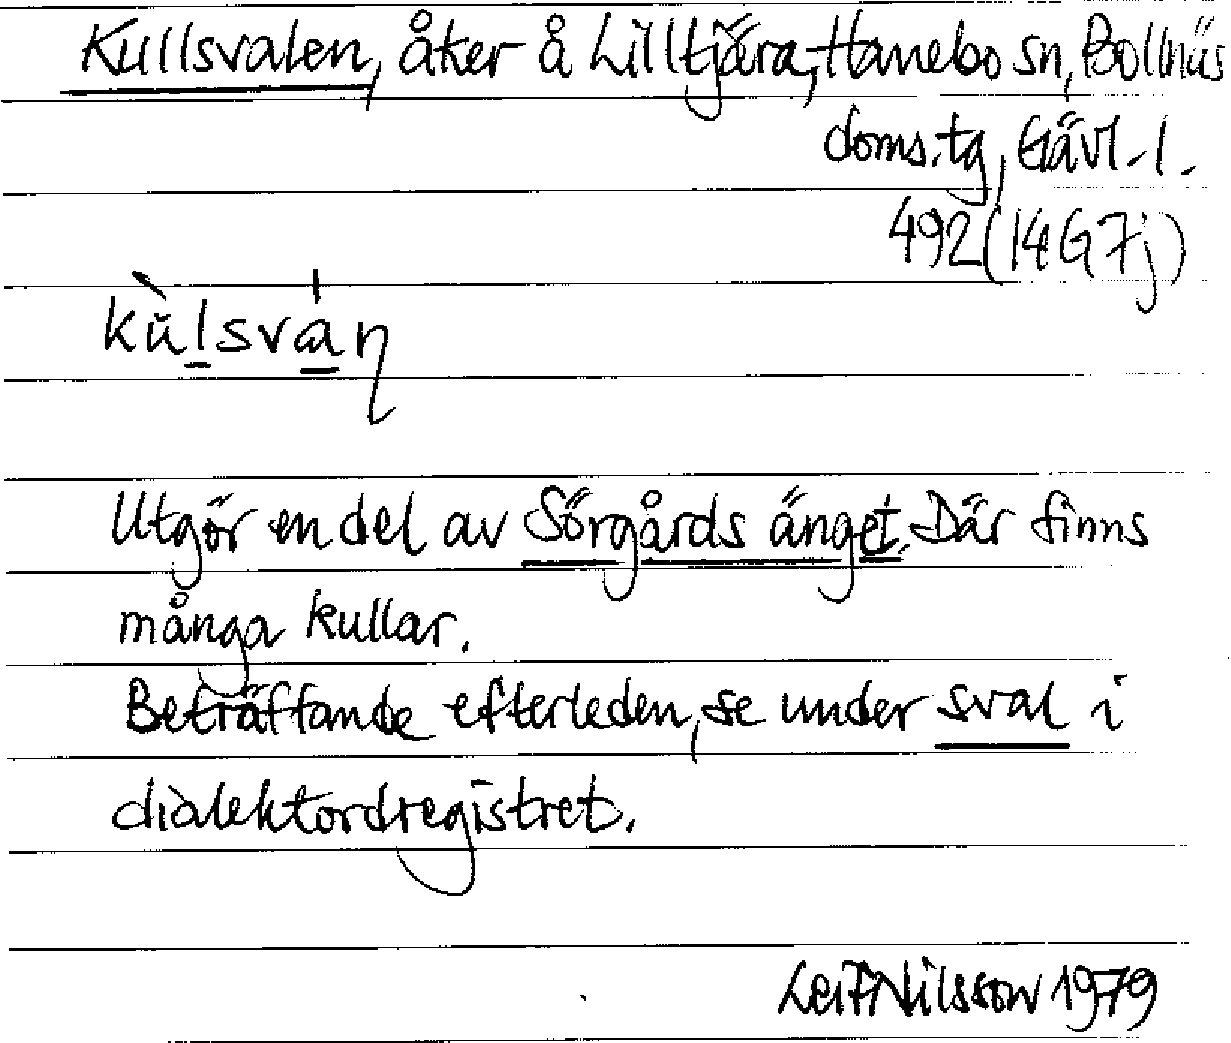 Kullsvalen, åker å Lilltjära, Hanebo sn, Bollnäs
doms.tg, Gävl. l.
492 (14G 7j)
kùlsváŋ
Utgör en del av Sörgårds änget. Där finns
många kullar.
Beträffande efterleden, se under sval i
dialektordregistret.
Leif Nilsson 1979